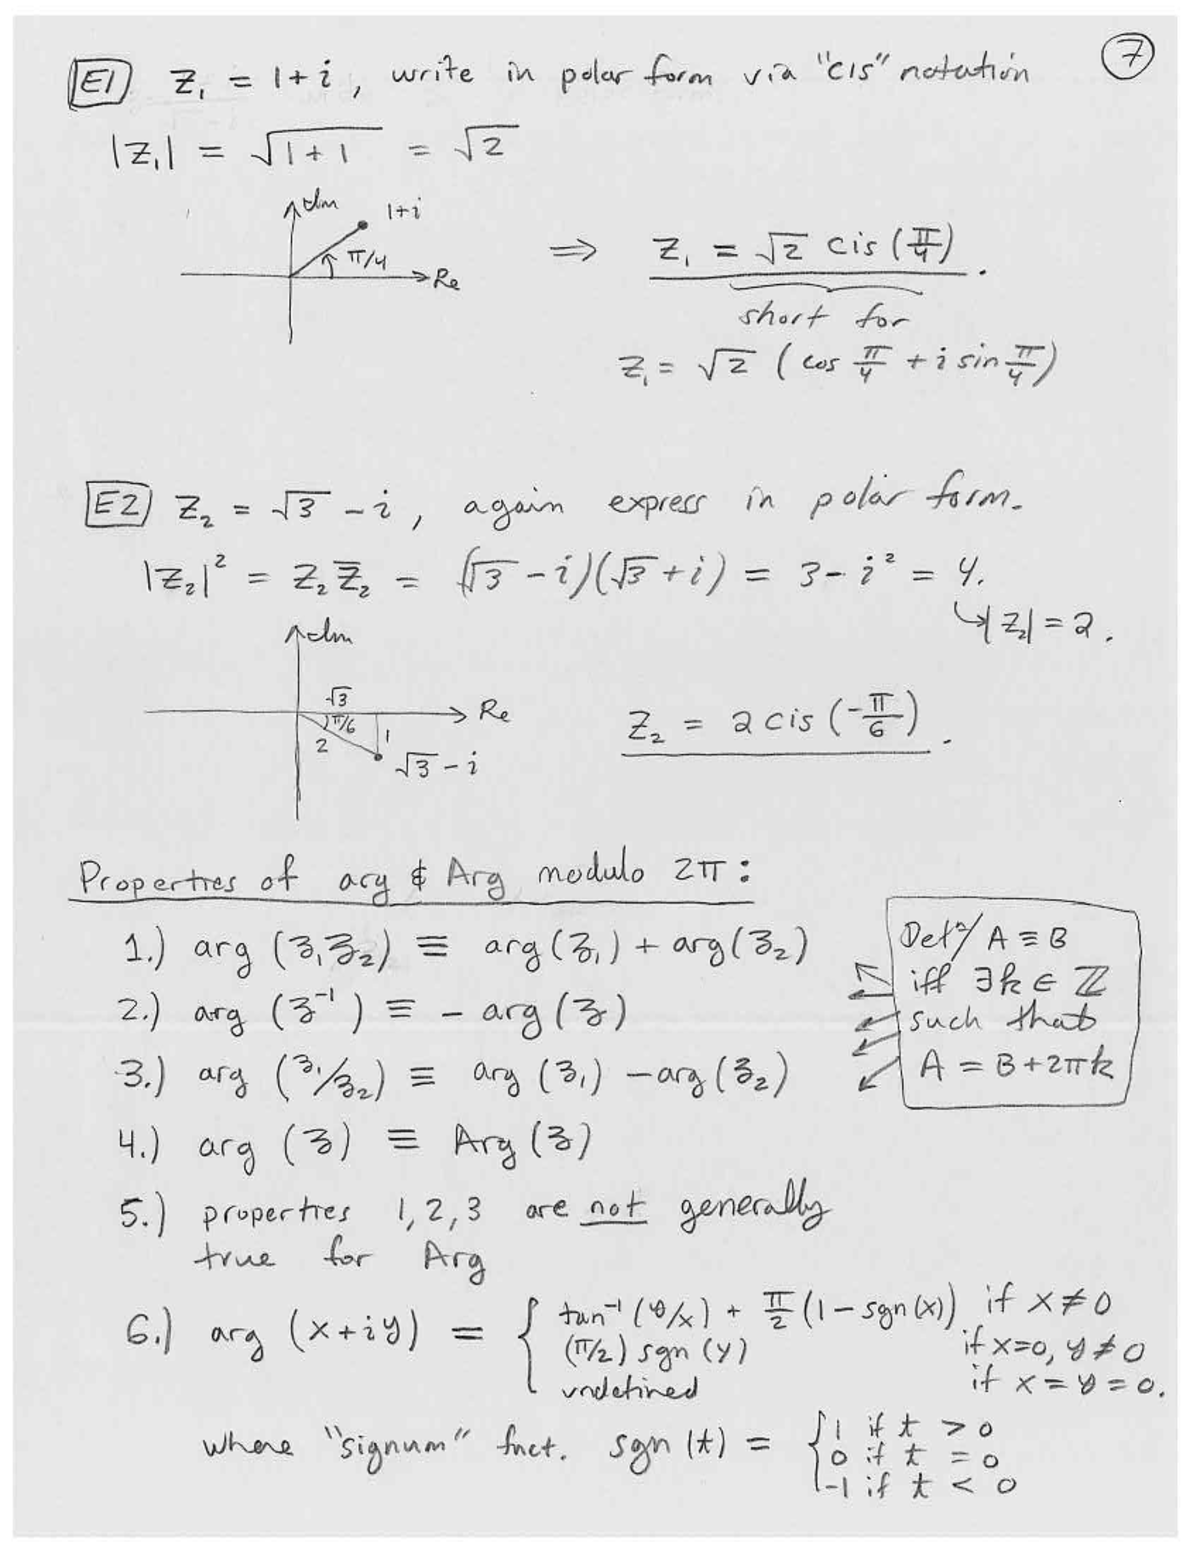 7
E1 Z₁ = 1+i, write in polar form via "cis" notation
|Z₁| = √(1+1) = √2
Im
1+i
π/4
Re
⇒ Z₁ = √2 cis(π/4).
short for
Z₁ = √2 (cos π/4 + i sin π/4)
E2 Z₂ = √3 - i, again express in polar form.
|Z₂|² = Z₂Z̄₂ = (√3 - i)(√3 + i) = 3 - i² = 4.
↳ |Z₂| = 2.
Im
√3
Re
π/6
2
1
√3 - i
Z₂ = 2 cis(-π/6).
Properties of arg & Arg modulo 2π:
1.) arg (z₁z₂) ≡ arg(z₁) + arg(z₂)
2.) arg (z⁻¹) ≡ - arg(z)
3.) arg (z₁/z₂) ≡ arg(z₁) - arg(z₂)
4.) arg (z) ≡ Arg(z)
5.) properties 1,2,3 are not generally
true for Arg
Defⁿ/ A ≡ B
iff ∃k ∈ ℤ
such that
A = B + 2πk
6.) arg (x+iy) = { tan⁻¹(y/x) + π/2 (1 - sgn(x)) if x ≠ 0
(π/2) sgn(y) if x=0, y ≠ 0
undefined if x = y = 0.
where "signum" fnct. sgn(t) = { 1 if t > 0
0 if t = 0
-1 if t < 0